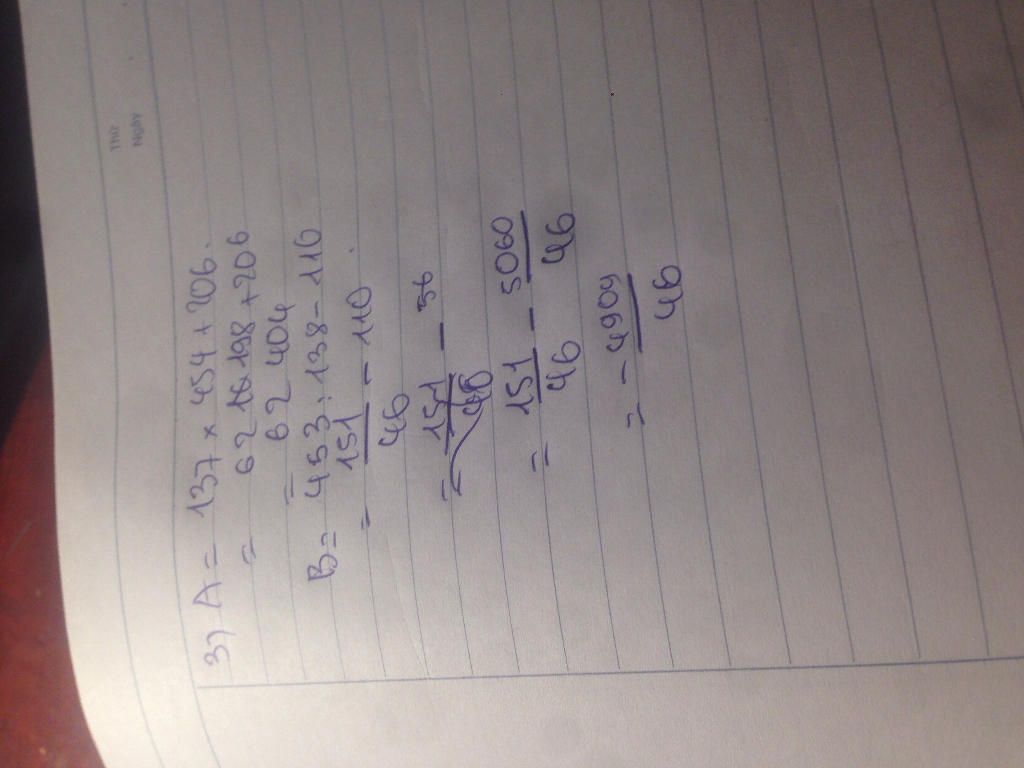 Thứ
Ngày
3, A = 137 × 454 + 206.
= 62 198 + 206
= 62 404
B = 453 : 138 - 110
= 151/46 - 110.
= 151/46 - 56
= 151/46 - 5060/46
= - 4909/46